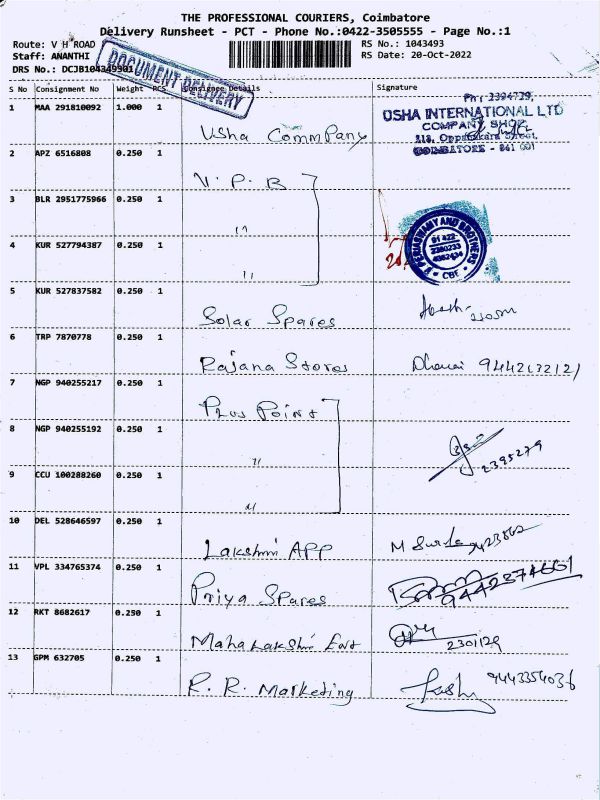 THE PROFESSIONAL COURIERS, Coimbatore
Delivery Runsheet - PCT - Phone No.:0422-3505555 - Page No.:1
Route: V H ROAD RS No.: 1043493
Staff: ANANTHI RS Date: 20-Oct-2022
DRS No.: DCJB104349901
DOCUMENT DELIVERY
S No Consignment No Weight PCS Consignee Details Signature
1 MAA 291810092 1.000 1 Usha Commpany
Ph: 2394729,
USHA INTERNATIONAL LTD
COMPANY SHOP
COIMBATORE - 641 001
2 APZ 6516808 0.250 1 V. P. B
3 BLR 2951775966 0.250 1 "
4 KUR 527794387 0.250 1 "
PERIASWAMY AND BROTHERS
91 422
2380233
4362434
CBE
5 KUR 527837582 0.250 1 Solar Spares
6 TRP 7870778 0.250 1 Rajana Stores
7 NGP 940255217 0.250 1 Plus Point
8 NGP 940255192 0.250 1 " 2395279
9 CCU 100288260 0.250 1 "
10 DEL 528646597 0.250 1 Lakshmi APP
11 VPL 334765374 0.250 1 Priya Spares 9442374661
12 RKT 8682617 0.250 1 Maha Lakshmi Ent 2301129
13 GPM 632705 0.250 1 R. R. Marketing 9443354036